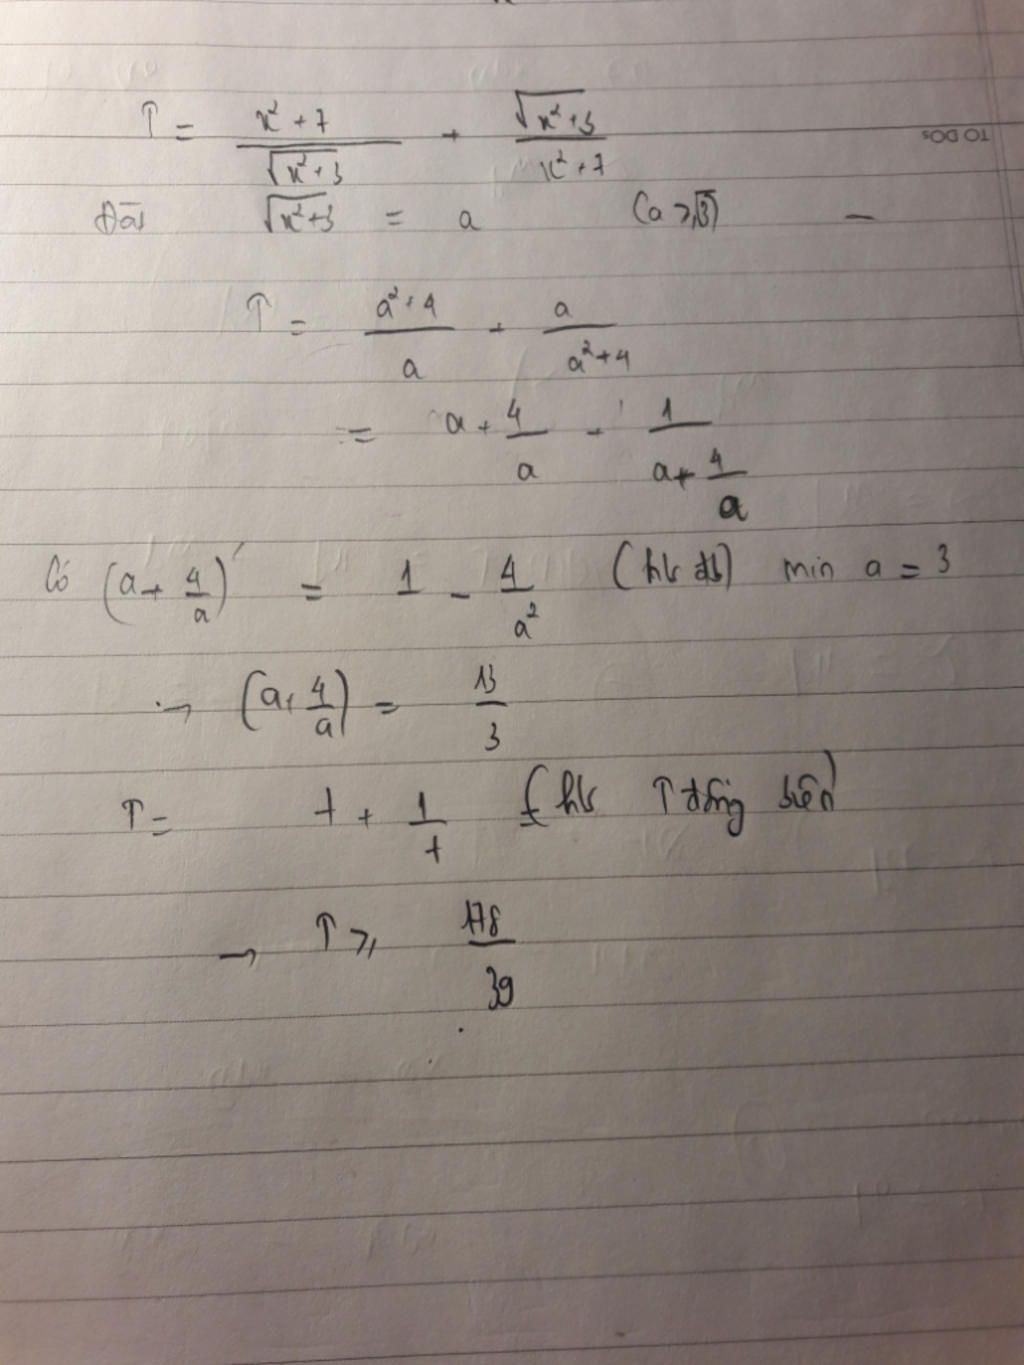 T = (x² + 7)/√(x² + 3) + √(x² + 3)/(x² + 7)
TO DOs
Đặt √(x² + 3) = a (a ≥ √3) –
T = (a² + 4)/a + a/(a² + 4)
= a + 4/a + 1/(a + 4/a)
Có (a + 4/a)' = 1 - 4/a² (hs đb) min a = 3
→ (a + 4/a) = 13/3
T = t + 1/t (hs T đồng biến)
→ T ≥ 178/39